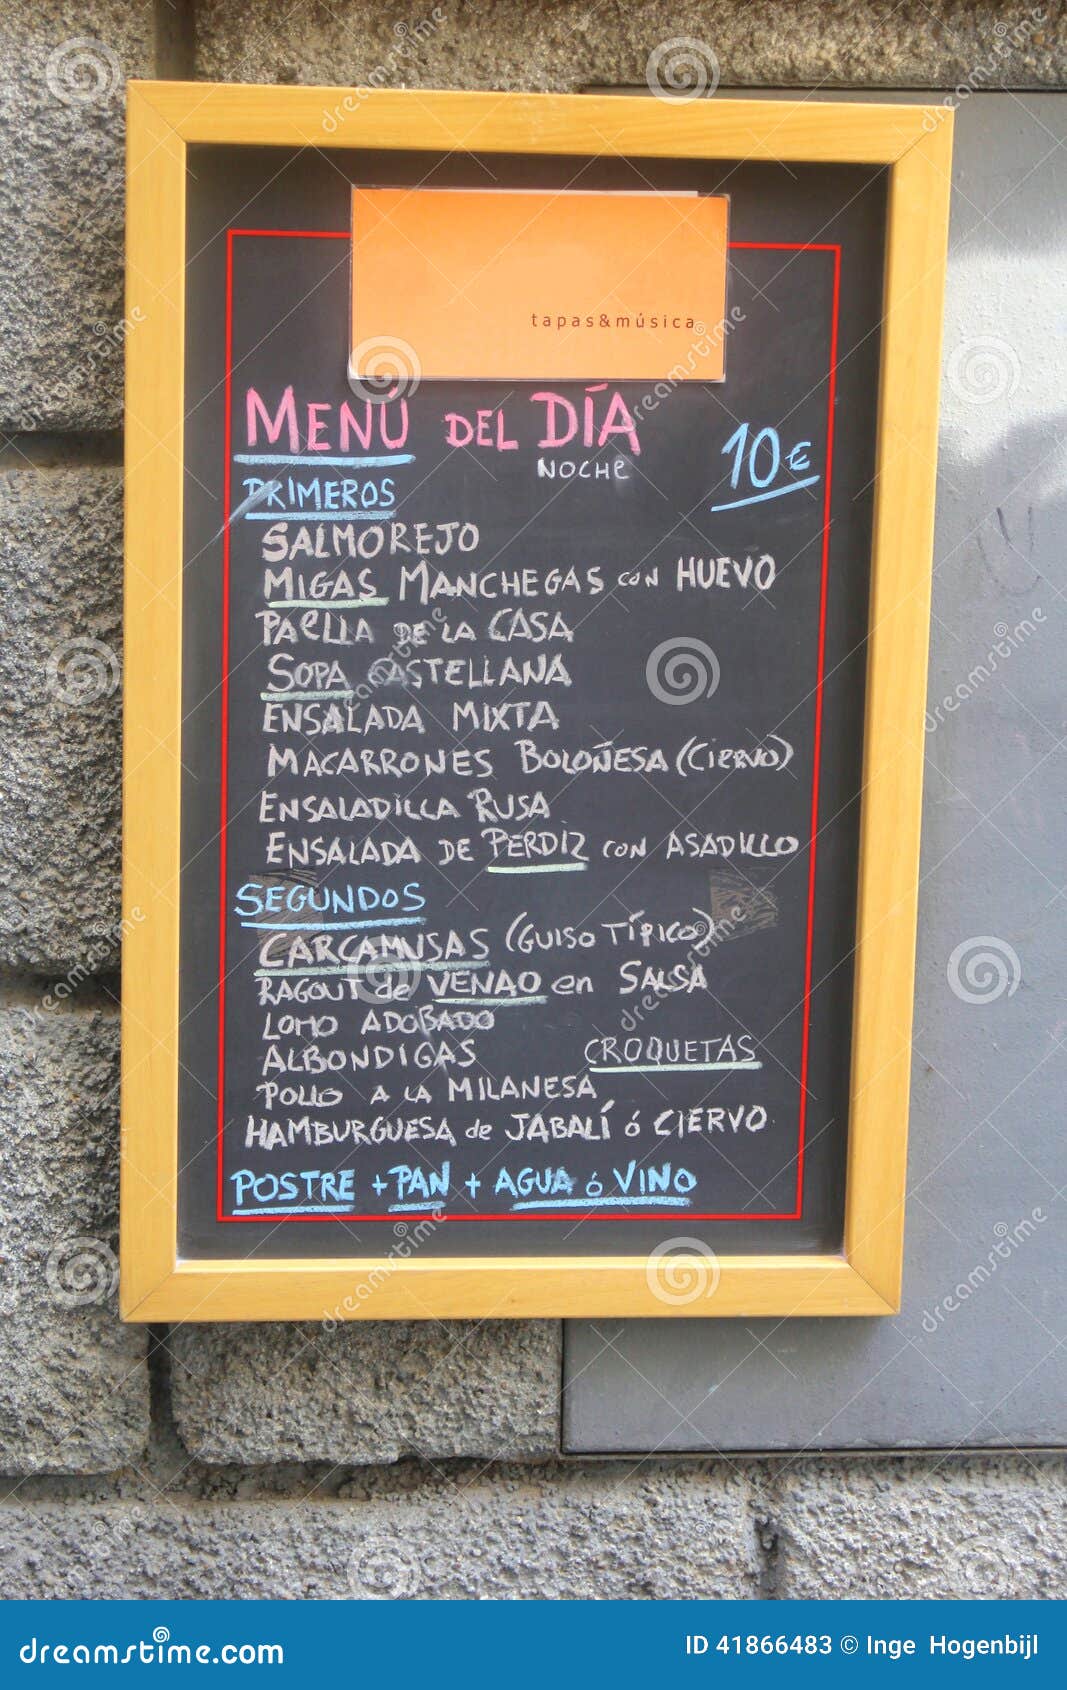 tapas&música
MENÚ DEL DÍA
NOCHE
10€
PRIMEROS
SALMOREJO
MIGAS MANCHEGAS CON HUEVO
PAELLA DE LA CASA
SOPA CASTELLANA
ENSALADA MIXTA
MACARRONES BOLOÑESA (CIERVO)
ENSALADILLA RUSA
ENSALADA DE PERDIZ CON ASADILLO
SEGUNDOS
CARCAMUSAS (GUISO TÍPICO)
RAGOUT de VENAO en SALSA
LOMO ADOBADO
ALBONDIGAS CROQUETAS
POLLO A LA MILANESA
HAMBURGUESA de JABALÍ ó CIERVO
POSTRE + PAN + AGUA ó VINO
dreamstime.com
ID 41866483 © Inge Hogenbijl